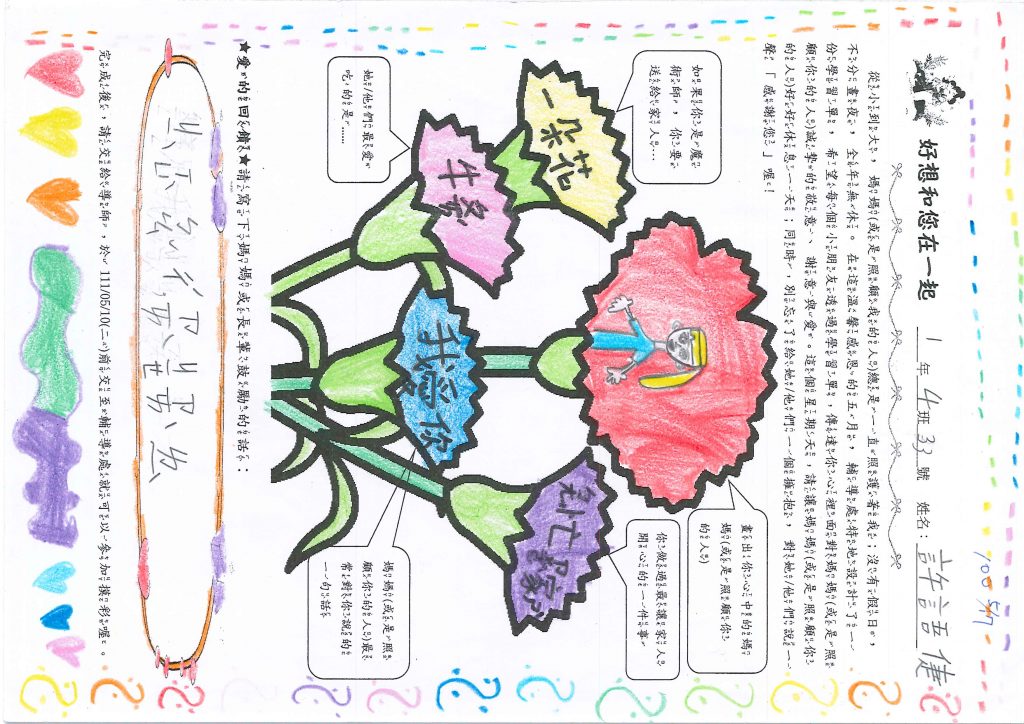 好想和您在一起 1年4班33號 姓名：許語倢
100 5/17
從小到大，媽媽(或是照顧我的人)總是一直照護著我；沒有假日，
不分晝夜，全年無休。在這溫馨感恩的五月，輔導處特地設計了一
份學習單，希望每個小朋友透過學習單，傳達你心裡面對媽媽(或是照
顧你的人)誠摯的敬意、謝意與愛。這個星期天，請讓媽媽(或是照顧你
的人)好好休息一天；同時，別忘了給她/他們一個擁抱，對她/他們說一
聲「感謝您」喔！
如果你是魔
術師，你要
送給家人…
一朵花
畫出你心中的媽
媽(或是照顧你
的人)
她/他們最愛
吃的是……
牛排
你做過最讓家人
開心的一件事
幫忙做家ㄕˋ
媽媽(或是照
顧你的人)最
常對你說的
一句話
我愛你
★愛的回饋★請寫下媽媽或長輩鼓勵的話：
完成後，請交給導師，於111/05/10(二)前交至輔導處就可以參加摸彩喔。